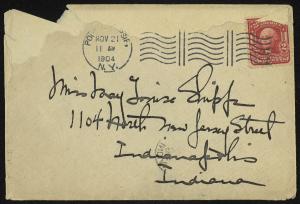 NOV 21
11 AM
1904
N.Y.
Miss May Louise Shipp
1104 North New Jersey Street
Indianapolis
Indiana